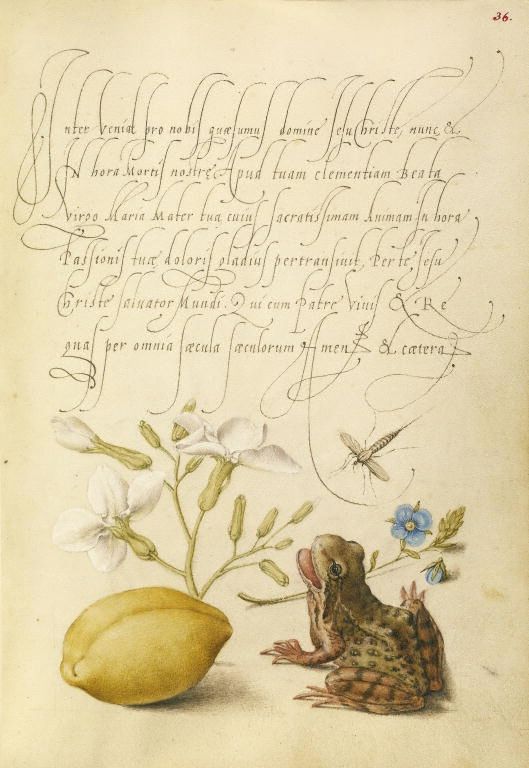 36.
Interveniat pro nobis quæsumus domine Jesu Christe, nunc, &
In hora Mortis nostre, Apud tuam clementiam Beata
Virgo Maria Mater tua cuius sacratissimam Animam In hora
Passionis tuæ doloris gladius pertransiuit, Per te, Jesu
Christe saluator Mundi. Qui cum Patre Viuis & Re
gnas per omnia sæcula sæculorum Amen & cætera